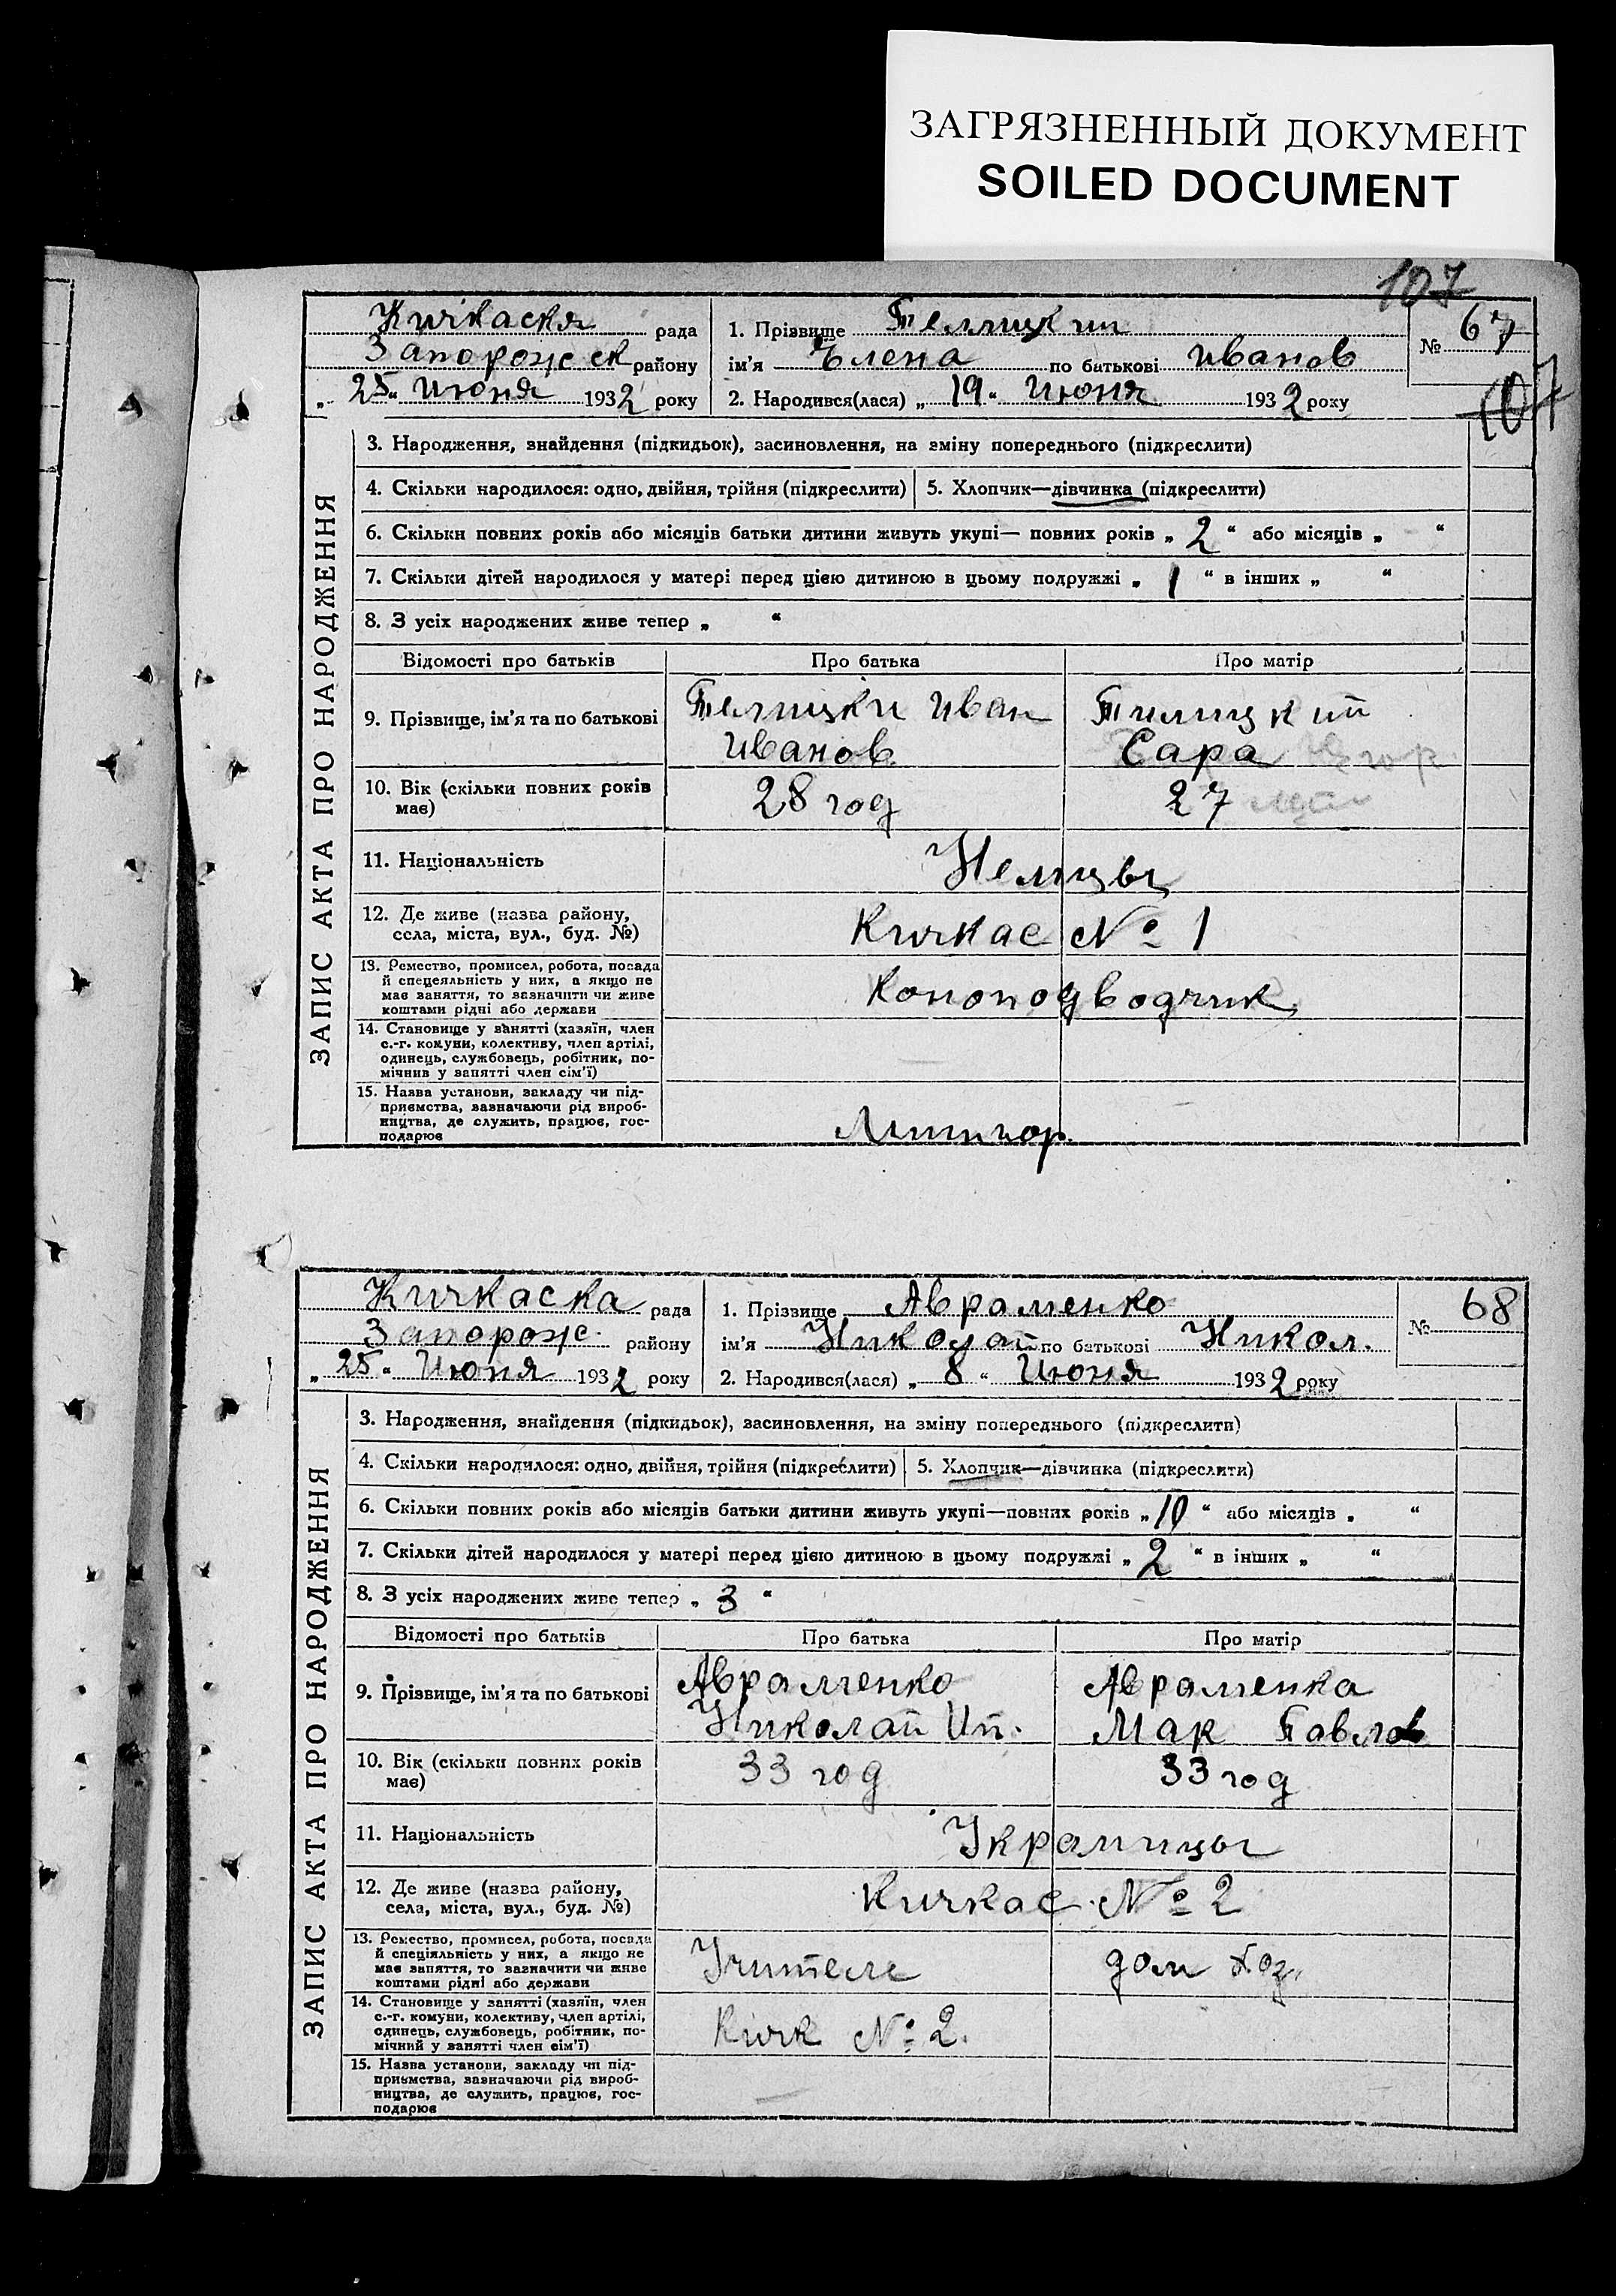 ЗАГРЯЗНЕННЫЙ ДОКУМЕНТ
SOILED DOCUMENT
107
Кичкаска рада
Запорожск району
„25“ Июня 1932 року
1. Прізвище
ім'я Елена по батькові Иванов
2. Народився(лася) „19“ Июня 1932 року
№ 67
107
ЗАПИС АКТА ПРО НАРОДЖЕННЯ
3. Народження, знайдення (підкидьок), засиновлення, на зміну попереднього (підкреслити)
4. Скільки народилося: одно, двійня, трійня (підкреслити) 5. Хлопчик—дівчинка (підкреслити)
6. Скільки повних років або місяців батьки дитини живуть укупі— повних років „2“ або місяців „ “
7. Скільки дітей народилося у матері перед цією дитиною в цьому подружжі „1“ в інших „ “
8. З усіх народжених живе тепер „ “
Відомості про батьків Про батька Про матір
9. Прізвище, ім'я та по батькові
Иван
Иванов
Сара
10. Вік (скільки повних років має)
28 год
27
11. Національність
Немцы
12. Де живе (назва району, села, міста, вул., буд. №)
Кичкас № 1
13. Ремество, промисел, робота, посада
й спецеяльність у них, а якщо не
має заняття, то зазначити чи живе
коштами рідні або держави
14. Становище у занятті (хазяїн, член
с.-г. комуни, колективу, член артілі,
одинець, службовець, робітник, по-
мічнив у занятті член сім'ї)
15. Назва установи, закладу чи під-
приємства, зазначаючи рід вироб-
ництва, де служить, працює, гос-
подарює
Кичкаска рада
Запорож. району
„25“ Июня 1932 року
1. Прізвище Авраменко
ім'я Николай по батькові Никол.
2. Народився(лася) „8“ Июня 1932 року
№ 68
ЗАПИС АКТА ПРО НАРОДЖЕННЯ
3. Народження, знайдення (підкидьок), засиновлення, на зміну попереднього (підкреслити)
4. Скільки народилося: одно, двійня, трійня (підкреслити) 5. Хлопчик—дівчинка (підкреслити)
6. Скільки повних років або місяців батьки дитини живуть укупі—повних років „10“ або місяців „ “
7. Скільки дітей народилося у матері перед цією дитиною в цьому подружжі „2“ в інших „ “
8. З усіх народжених живе тепер „3“
Відомості про батьків Про батька Про матір
9. Прізвище, ім'я та по батькові
Авраменко
Николай Ип.
Авраменка
Мак Павлов
10. Вік (скільки повних років має)
33 год
33 год
11. Національність
Украинцы
12. Де живе (назва району, села, міста, вул., буд. №)
Кичкас № 2
13. Ремество, промисел, робота, посада
й спеціяльність у них, а якщо не
має заняття, то зазначити чи живе
коштами рідні або держави
Учитель
дом хоз.
14. Становище у занятті (хазяїн, член
с.-г. комуни, колективу, член артілі,
одинець, службовець, робітник, по-
мічний у занятті член сім'ї)
Кичк № 2.
15. Назва установи, закладу чи під-
приємства, зазначаючи рід вироб-
ництва, де служить, працює, гос-
подарює